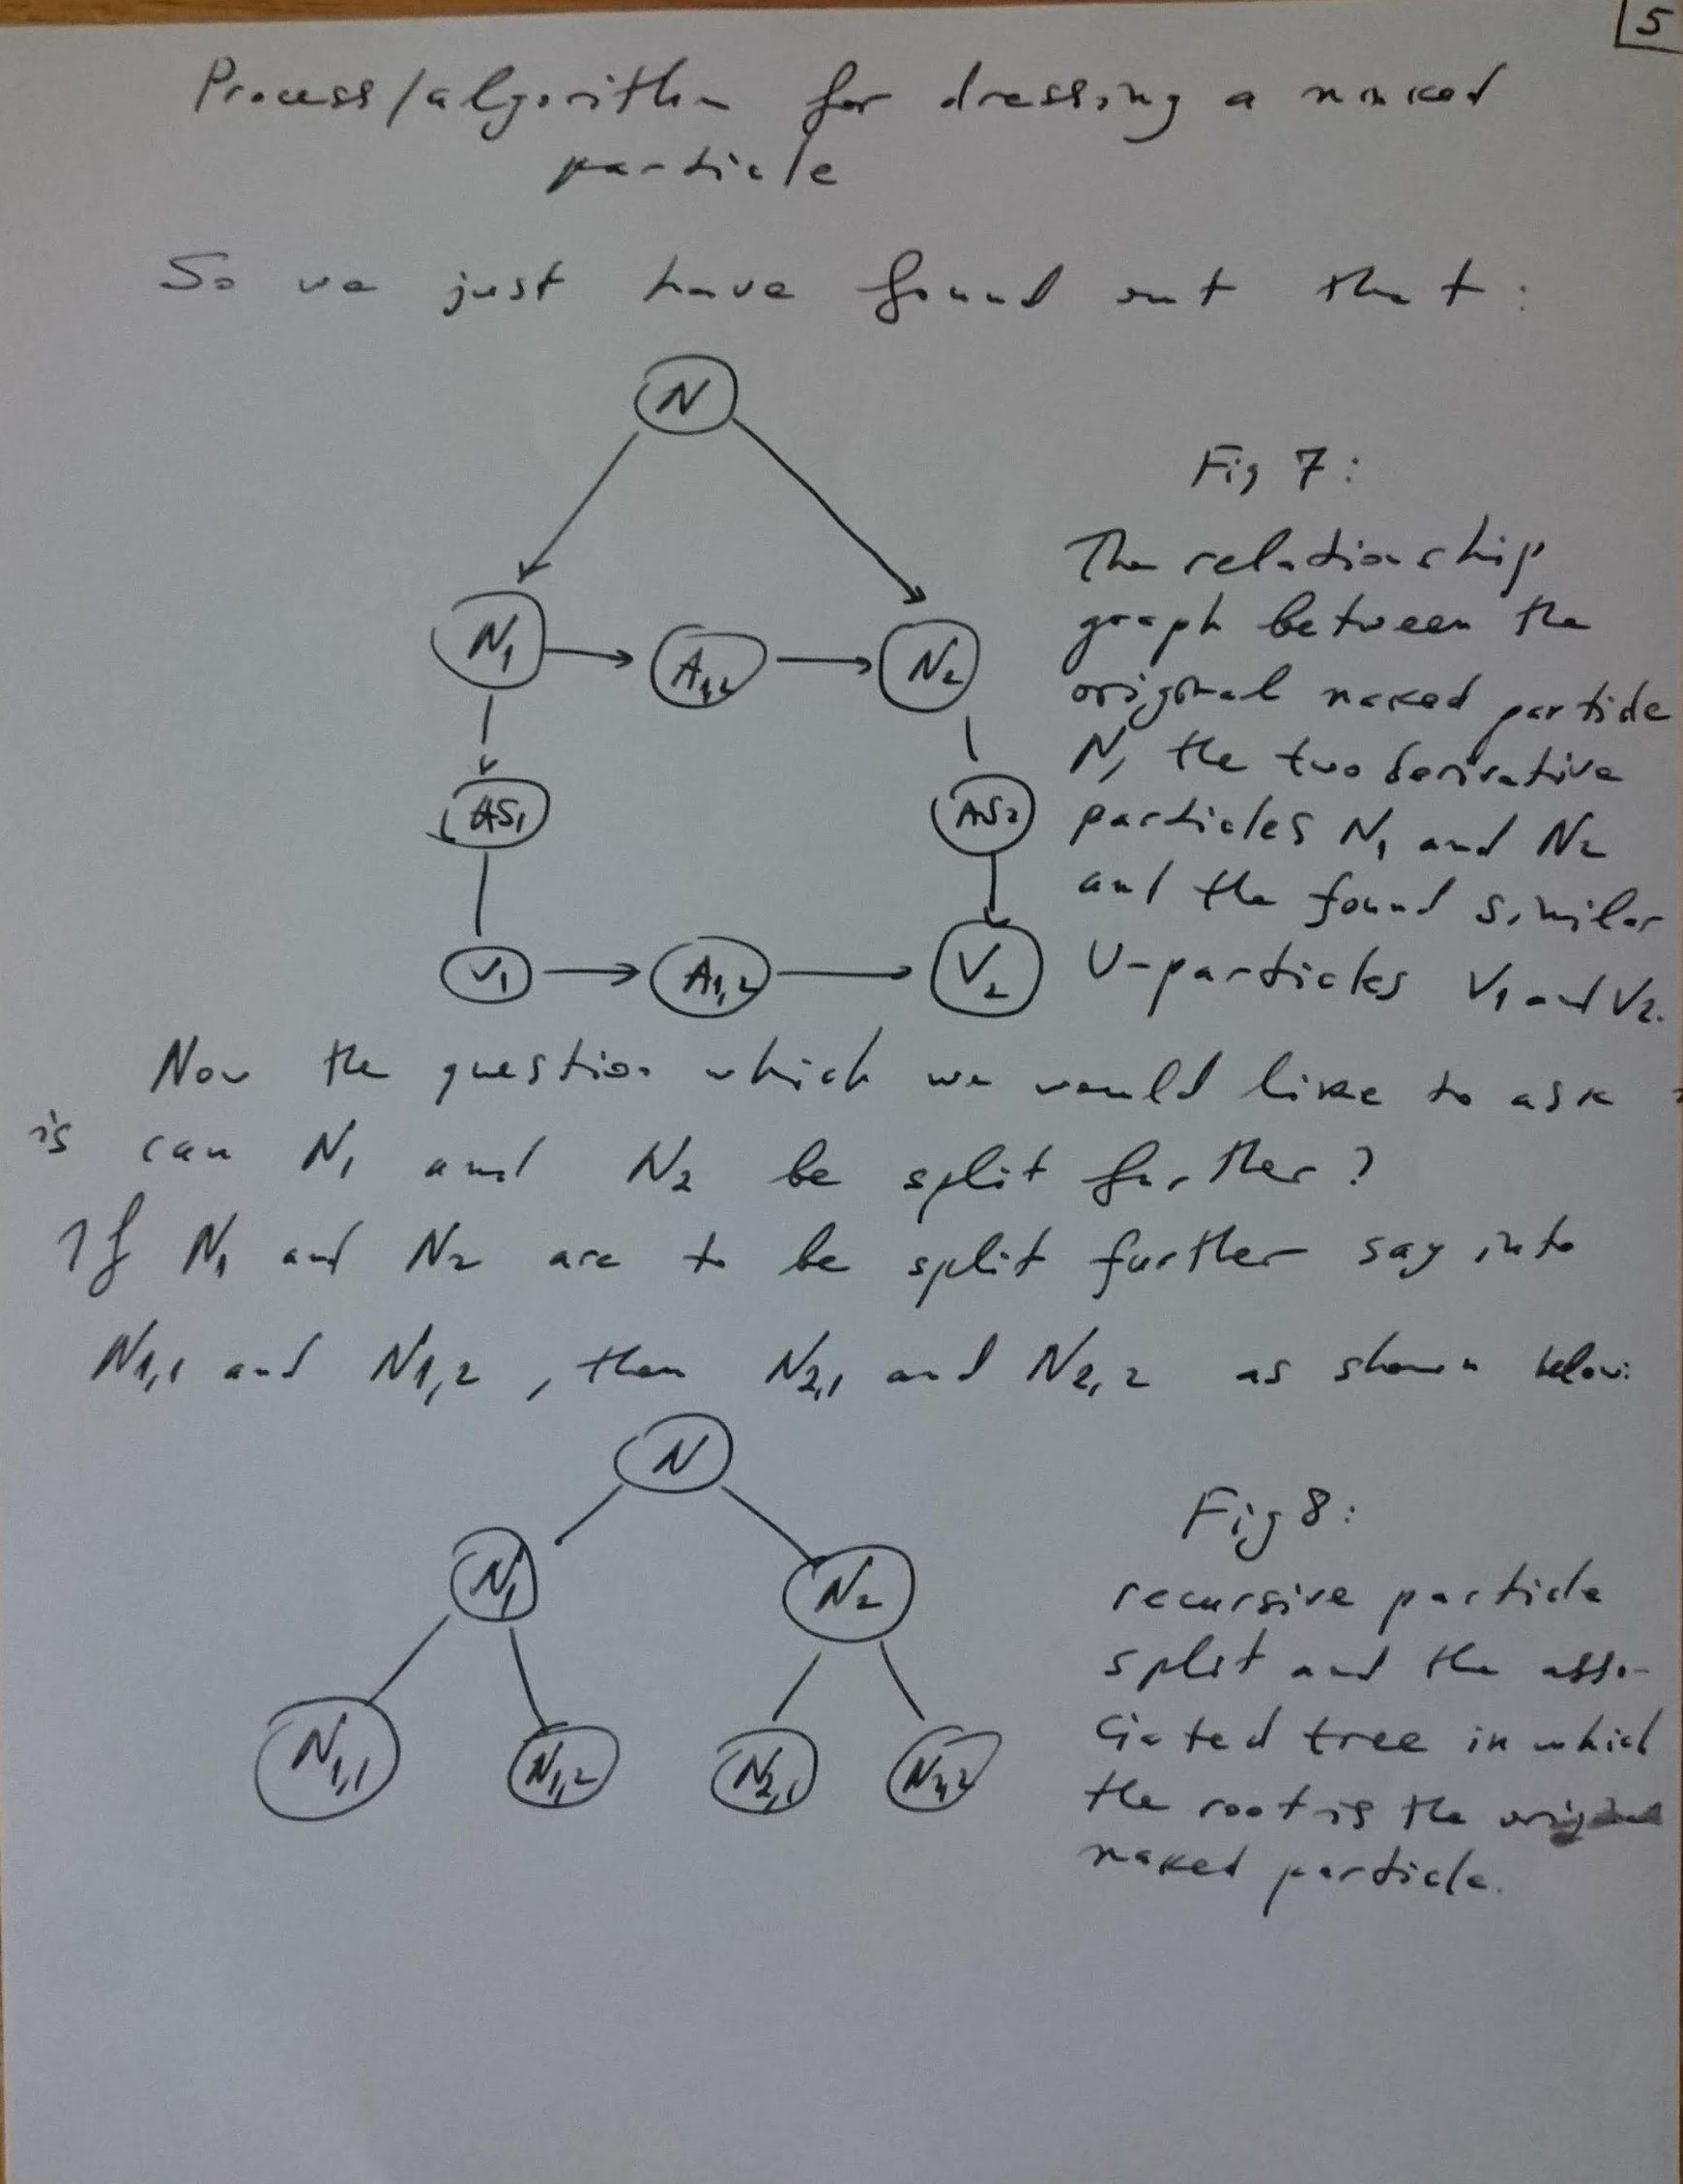 5
Process/algorithm for dressing a naked
particle
So we just have found out that:
N
Fig 7:
The relationship
graph between the
original naked particle
N, the two derivative
particles N1 and N2
and the found similar
U-particles V1 and V2.
N1 A1,2 N2
AS1 AS2
V1 A1,2 V2
Now the question which we would like to ask
is can N1 and N2 be split further?
If N1 and N2 are to be split further say into
N1,1 and N1,2, then N2,1 and N2,2 as shown below:
N
N1 N2
N1,1 N1,2 N2,1 N2,2
Fig 8:
recursive particle
split and the asso-
ciated tree in which
the root is the original
naked particle.